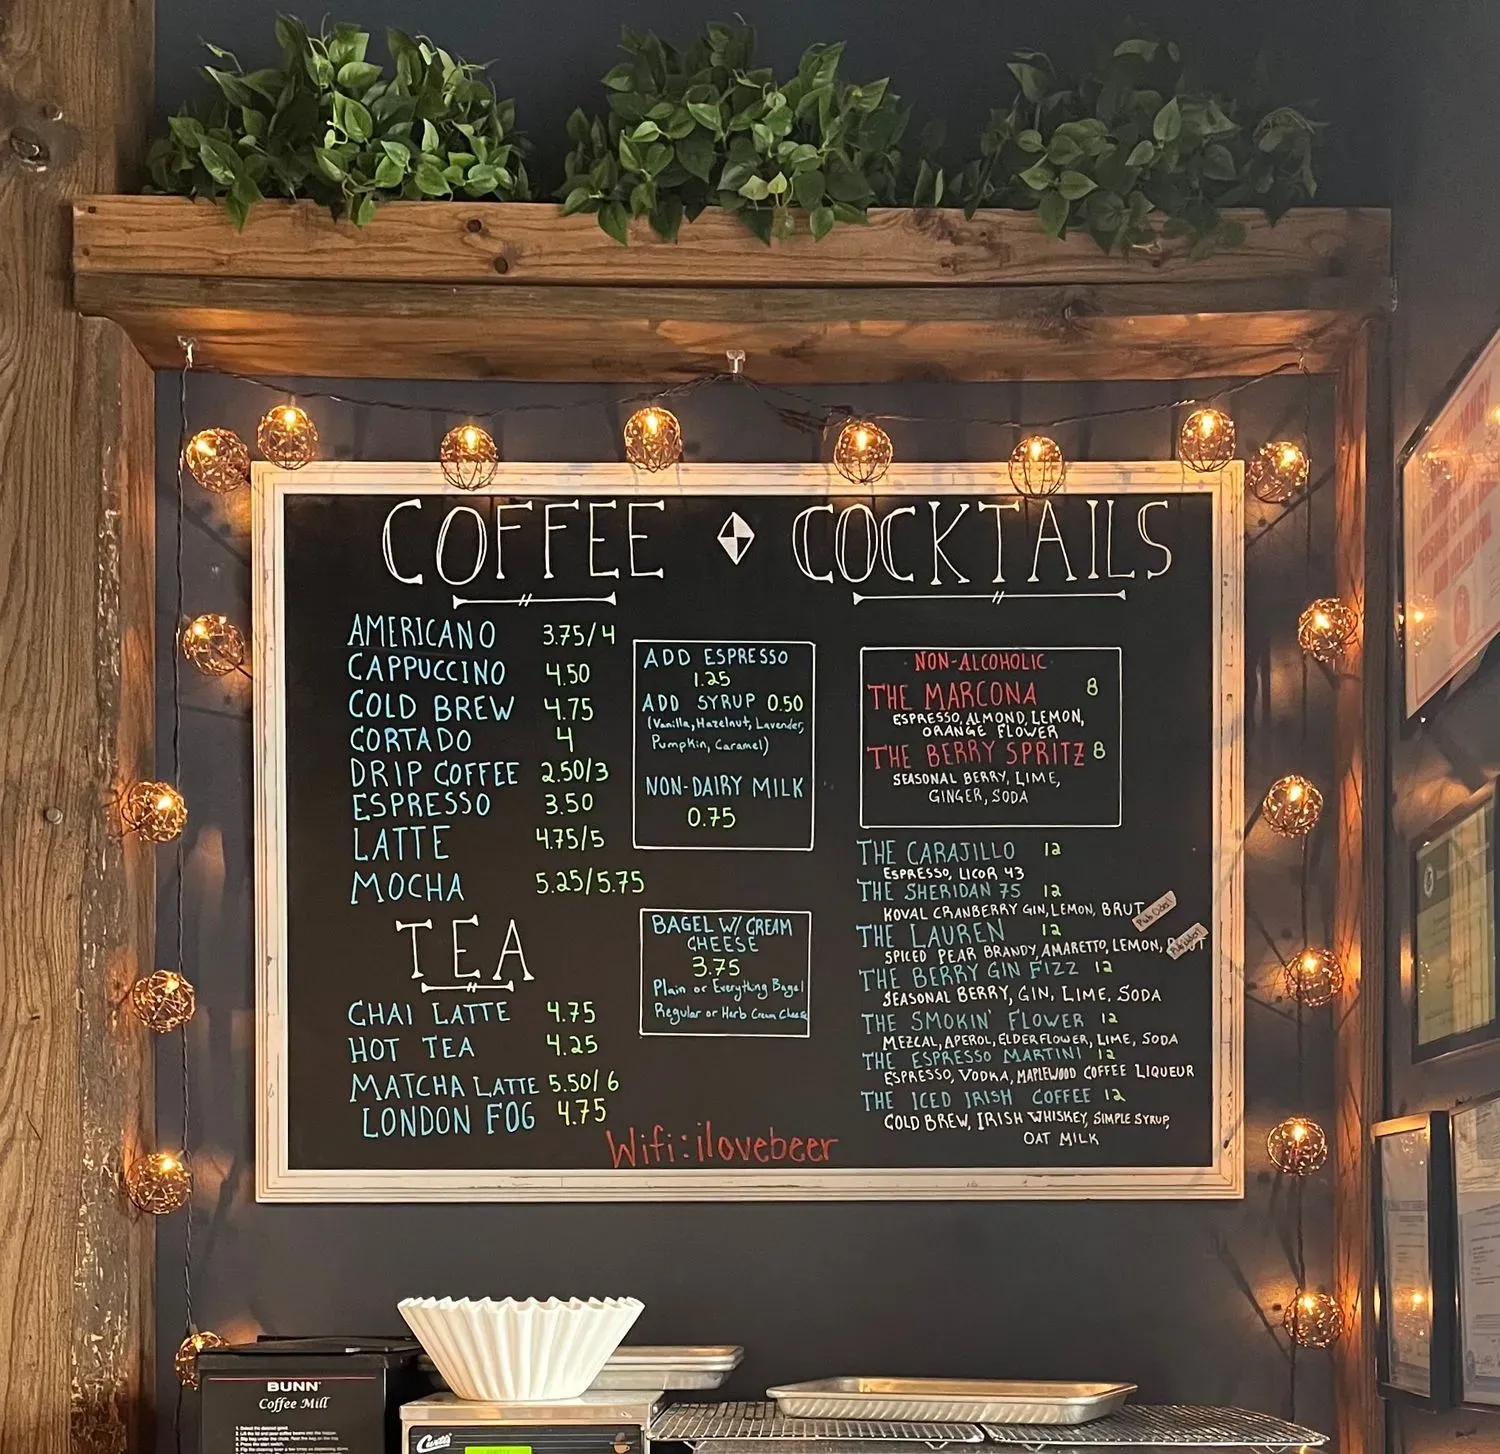 COFFEE
AMERICANO 3.75/4
CAPPUCCINO 4.50
COLD BREW 4.75
CORTADO 4
DRIP COFFEE 2.50/3
ESPRESSO 3.50
LATTE 4.75/5
MOCHA 5.25/5.75
ADD ESPRESSO
1.25
ADD SYRUP 0.50
(Vanilla, Hazelnut, Lavender,
Pumpkin, Caramel)
NON-DAIRY MILK
0.75
TEA
CHAI LATTE 4.75
HOT TEA 4.25
MATCHA LATTE 5.50/6
LONDON FOG 4.75
BAGEL W/ CREAM
CHEESE
3.75
Plain or Everything Bagel
Regular or Herb Cream Cheese
Wifi: ilovebeer
COCKTAILS
NON-ALCOHOLIC
THE MARCONA 8
ESPRESSO, ALMOND, LEMON,
ORANGE FLOWER
THE BERRY SPRITZ 8
SEASONAL BERRY, LIME,
GINGER, SODA
THE CARAJILLO 12
ESPRESSO, LICOR 43
THE SHERIDAN 75 12
KOVAL CRANBERRY GIN, LEMON, BRUT
THE LAUREN 12
SPICED PEAR BRANDY, AMARETTO, LEMON,
THE BERRY GIN FIZZ 12
SEASONAL BERRY, GIN, LIME, SODA
THE SMOKIN' FLOWER 12
MEZCAL, APEROL, ELDERFLOWER, LIME, SODA
THE ESPRESSO MARTINI 12
ESPRESSO, VODKA, MAPLEWOOD COFFEE LIQUEUR
THE ICED IRISH COFFEE 12
COLD BREW, IRISH WHISKEY, SIMPLE SYRUP,
OAT MILK
BUNN
Coffee Mill
Curtis